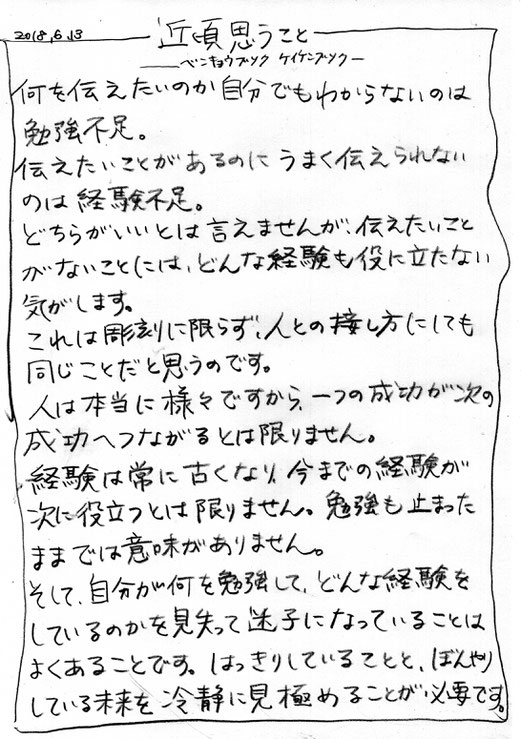 2018,6,13
近頃思うこと
ベンキョウブソク ケイケンブソク
何を伝えたいのか自分でもわからないのは
勉強不足。
伝えたいことがあるのにうまく伝えられない
のは経験不足。
どちらがいいとは言えませんが、伝えたいこと
がないことには、どんな経験も役に立たない
気がします。
これは彫刻に限らず、人との接し方にしても
同じことだと思うのです。
人は本当に様々ですから、一つの成功が次の
成功へつながるとは限りません。
経験は常に古くなり、今までの経験が
次に役立つとは限りません。勉強も止まった
ままでは意味がありません。
そして、自分が何を勉強して、どんな経験を
しているのかを見失って迷子になっていることは
よくあることです。はっきりしていることと、ぼんやり
している未来を冷静に見極めることが必要です。